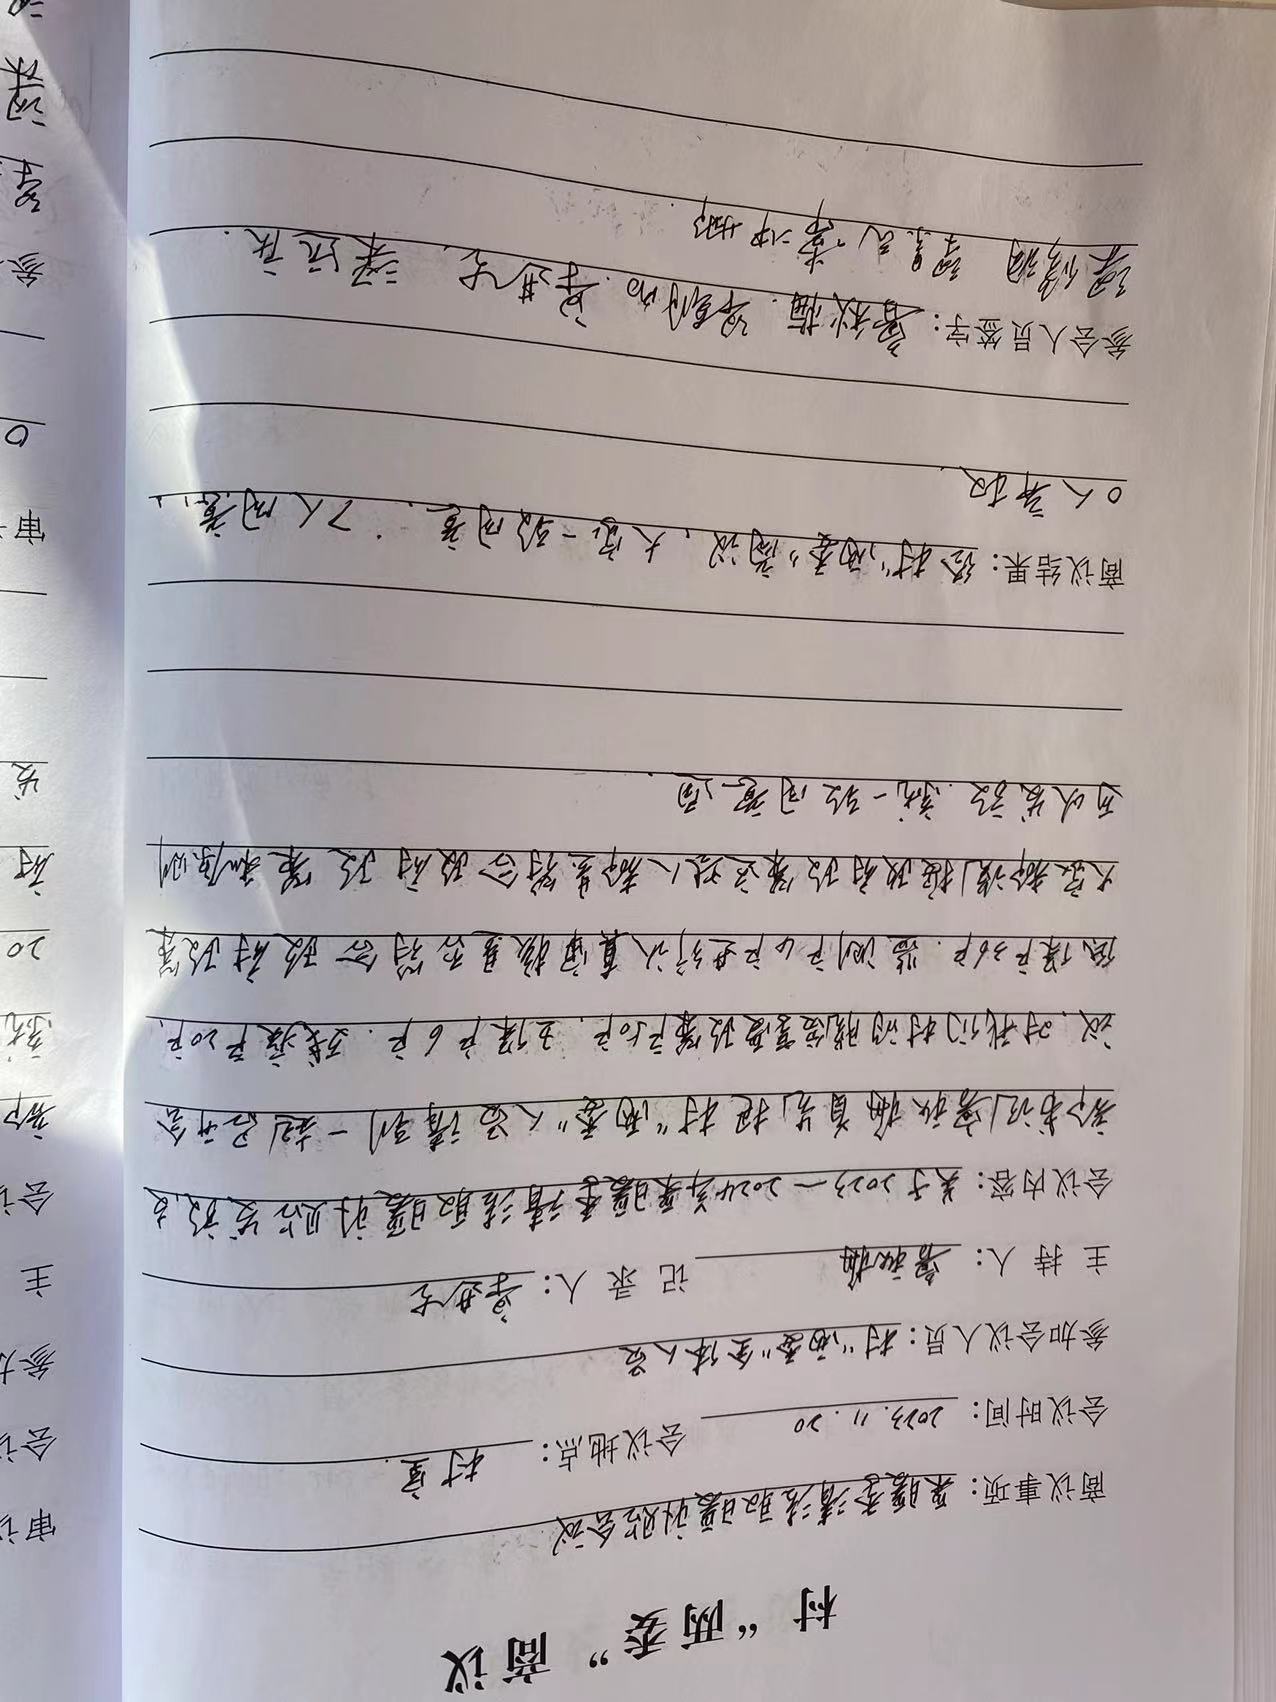 村“两委”商议
商议事项：采暖季清洁取暖补贴会议
会议时间：2023.11.20 会议地点：村室.
参加会议人员：村“两委”全体人员
主持人：鲁秋梅 记录人：梁进生
会议内容：关于2023—2024年采暖季清洁取暖补贴发放,支
部书记鲁秋梅首先把村“两委”人员请到一起召开会
议.对我们村的脱贫享受政策户50户.五保户6户.残疾户20户.
低保户36户.监测户4户进行认真审核是否符合政府政策
大家都说按政府政策这些人都是符合政府政策和原则
可以发放.就一致同意通.
商议结果：经村“两委”商议.大家一致同意.7人同意,
0人弃权.
参会人员签字：鲁秋梅.梁朝.梁进生.梁远庆.
梁修 梁景 常冲娜.
审议
会议
参加
主
会议
部
就
20
府
发
审
0
参
梁
梁